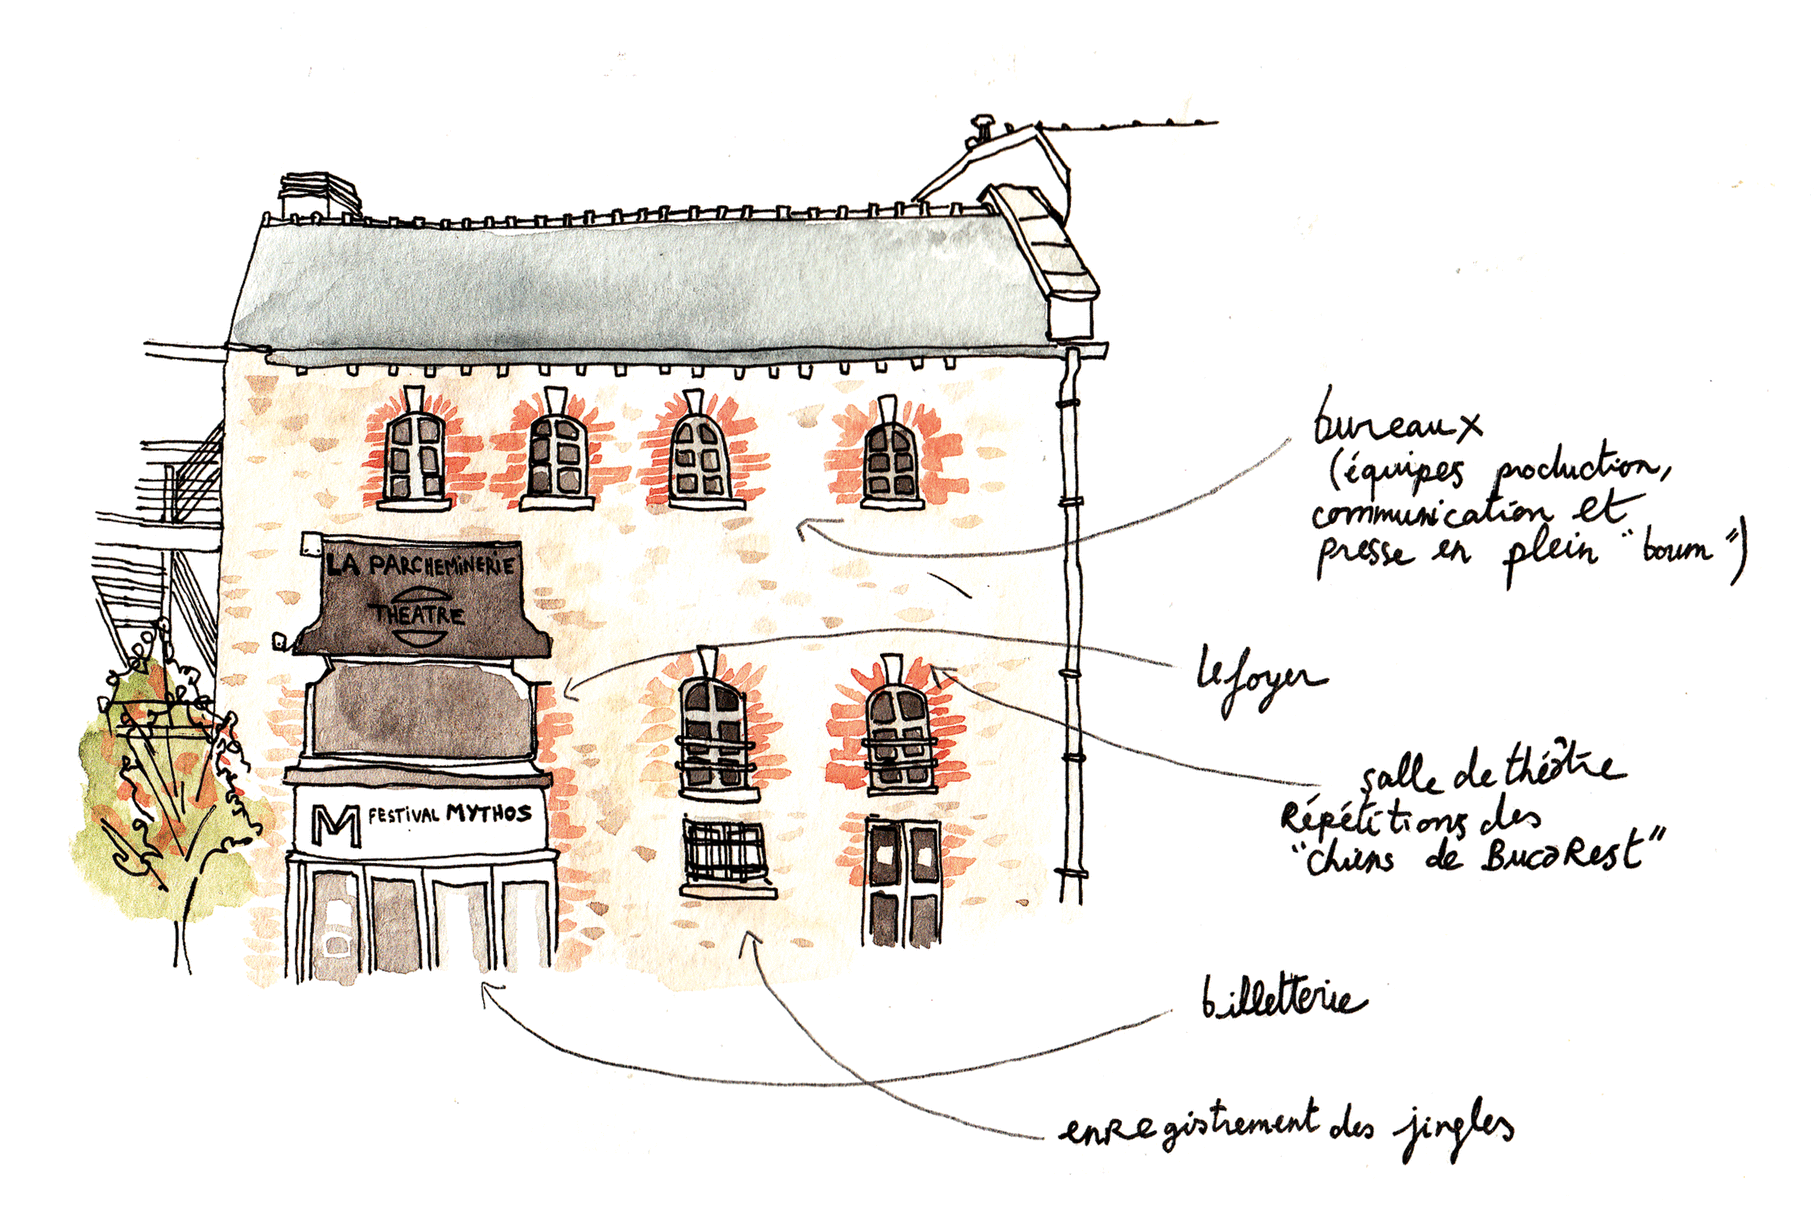 LA PARCHEMINERIE
THEATRE
M FESTIVAL MYTHOS
bureaux
(équipes production,
communication et
presse en plein "boum")
le foyer
salle de théâtre
Répétitions des
"chiens de BucaRest"
billetterie
enregistrement des jingles